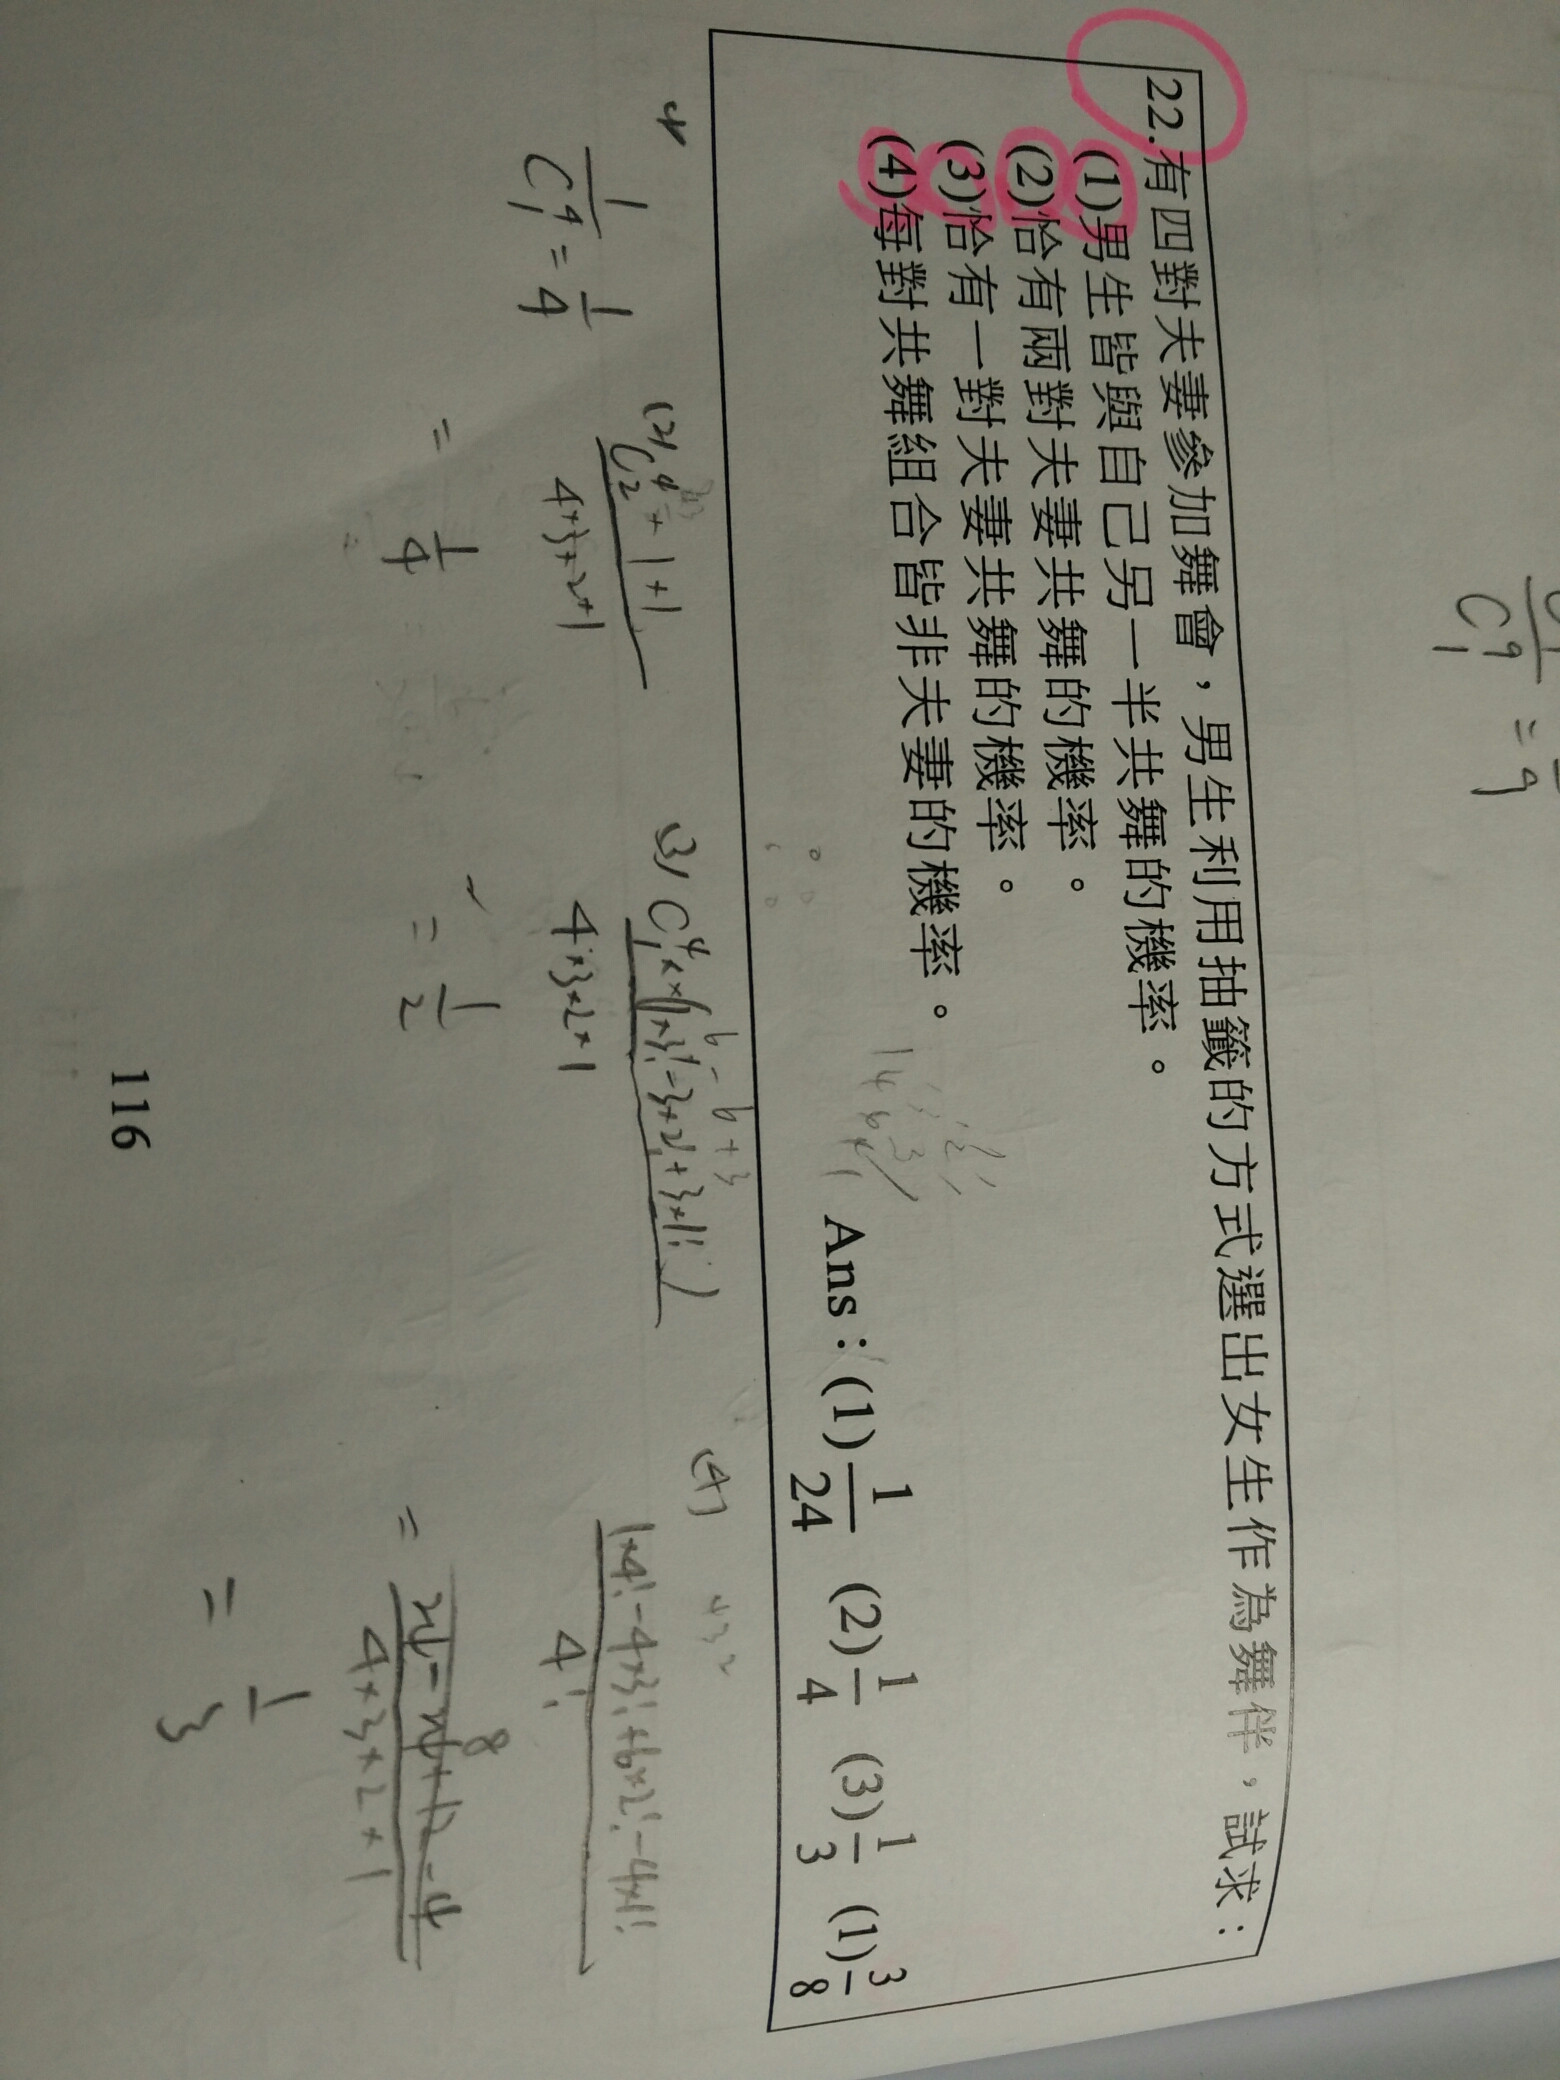 22.有四對夫妻參加舞會，男生利用抽籤的方式選出女生作為舞伴，試求：
(1)男生皆與自己另一半共舞的機率。
(2)恰有兩對夫妻共舞的機率。
(3)恰有一對夫妻共舞的機率。
(4)每對共舞組合皆非夫妻的機率。
Ans：(1) 1/24 (2) 1/4 (3) 1/3 (1) 3/8
1/C⁴₁ = 1/4
(2)
4×3×2×1
= 1/4
(3)
4×3×2×1
= 1/2
(4)
1×4!-4×3!+6×2!-4×1!
4!
=
4×3×2×1
= 1/3
116